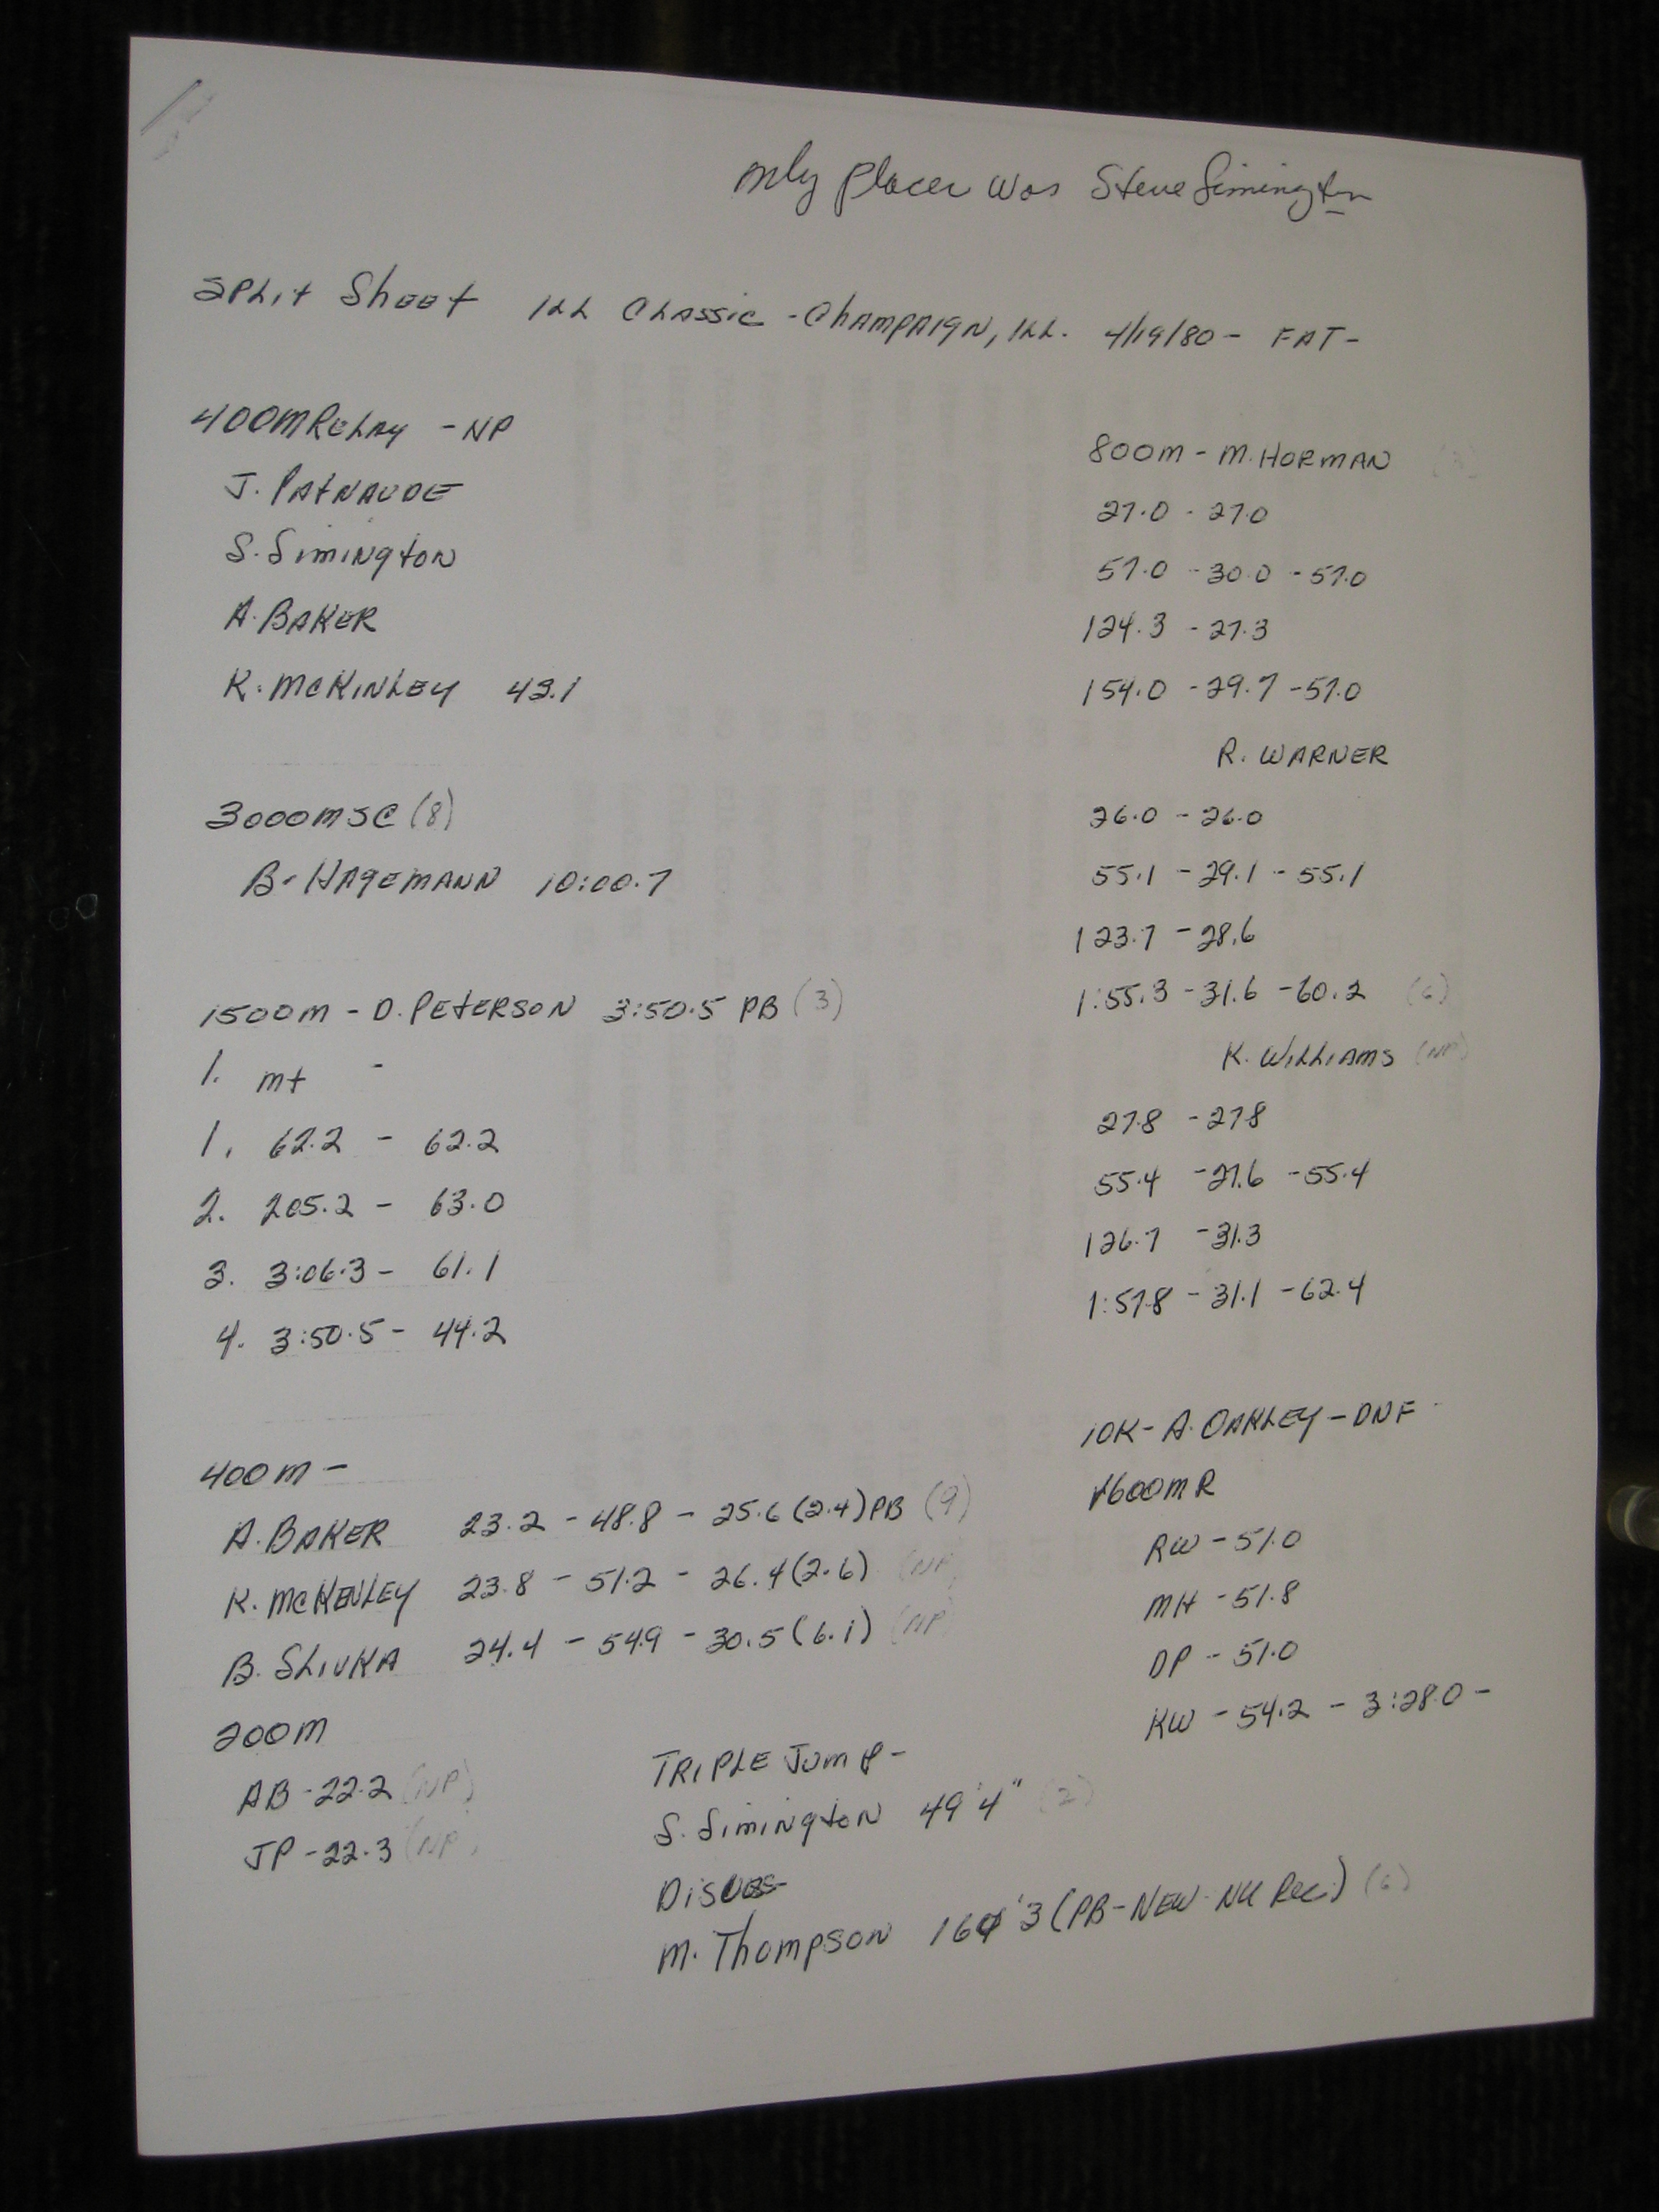 only placer was Steve Simington
Split Sheet ILL Classic - Champaign, ILL. 4/19/80 - FAT -
400m Relay - NP
J. Patnaude
S. Simington
A. Baker
K. McKinley 43.1
3000m SC (8)
B. Hagemann 10:00.7
1500m - D. Peterson 3:50.5 PB (3)
1. mt -
1. 62.2 - 62.2
2. 205.2 - 63.0
3. 3:06.3 - 61.1
4. 3:50.5 - 44.2
400m -
A. Baker 23.2 - 48.8 - 25.6 (2.4) PB (9)
K. McKenley 23.8 - 51.2 - 26.4 (2.6) (NP)
B. Slivka 24.4 - 54.9 - 30.5 (6.1) (NP)
200m
AB - 22.2 (NP)
JP - 22.3 (NP)
Triple Jump -
S. Simington 49'4" (2)
Discus -
M. Thompson 164'3 (PB - New NU Rec) (6)
800m - M. Horman
27.0 - 27.0
57.0 - 30.0 - 57.0
124.3 - 27.3
154.0 - 29.7 - 57.0
R. Warner
26.0 - 26.0
55.1 - 29.1 - 55.1
123.7 - 28.6
1:55.3 - 31.6 - 60.2 (6)
K. Williams (NP)
27.8 - 27.8
55.4 - 27.6 - 55.4
126.7 - 31.3
1:57.8 - 31.1 - 62.4
10K - A. Oakley - DNF
1600m R
RW - 51.0
MH - 51.8
DP - 51.0
KW - 54.2 - 3:28.0 -